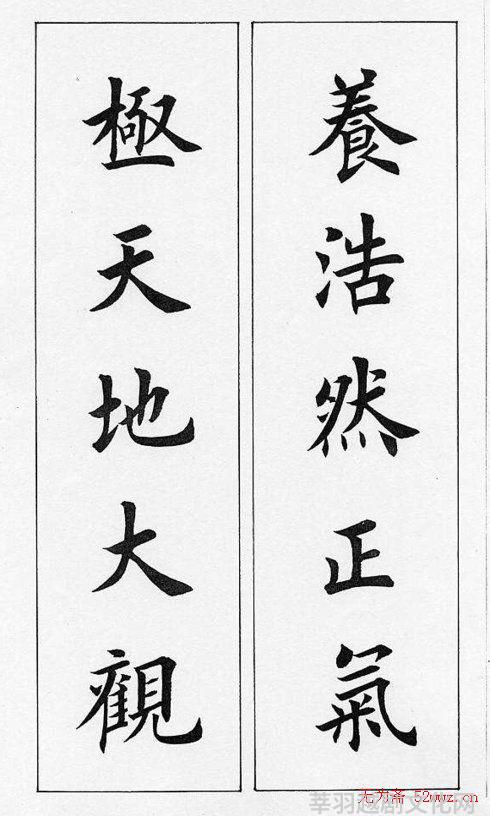 養浩然正氣
極天地大觀
无为斋 52wwz.cn
莘羽越剧文化网